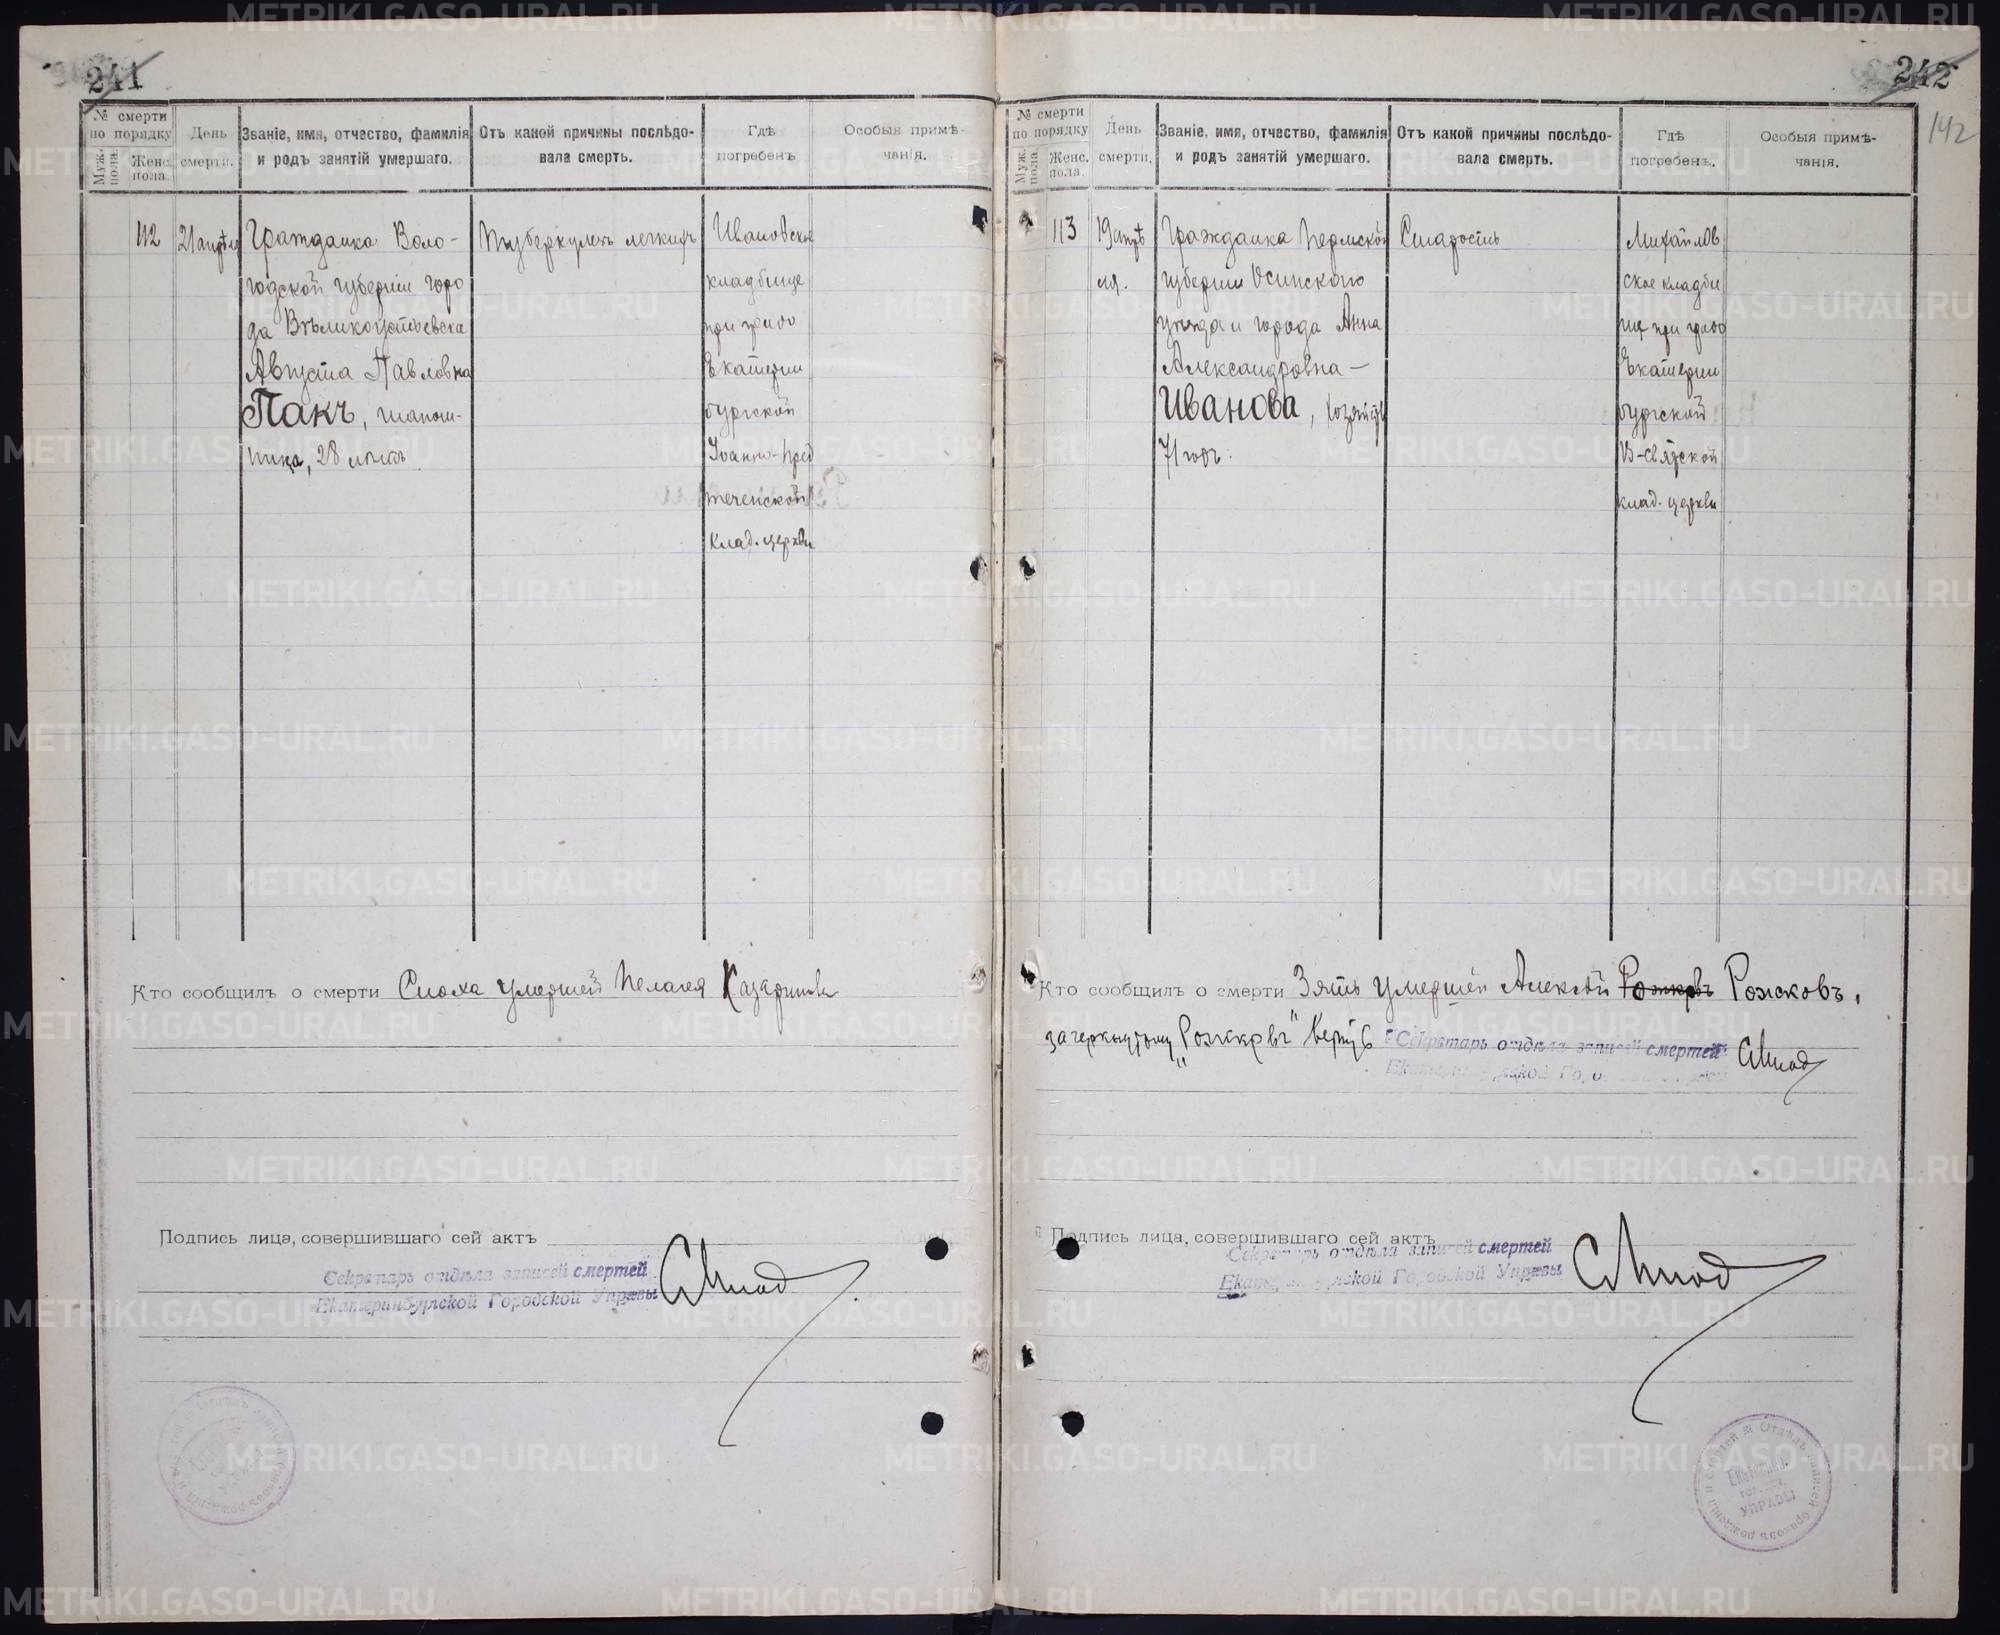 241
№ смерти
по порядку
Муж. пола.
Женс. пола.
День
смерти.
Званіе, имя, отчество, фамилія
и родъ занятій умершаго.
Отъ какой причины послѣдо-
вала смерть.
Гдѣ
погребенъ
Особыя примѣ-
чанія.
112
21 апрѣля
Гражданка Воло-
годской губерніи горо
да Вѣликоустьевска
Августа Павловна
Пакъ, шапош-
ница, 28 лѣтъ
Туберкулезъ легкихъ
Ивановское
кладбище
при градо
Екатерин
бургской
Іоанно-Пред
теченской
клад. церкви
Кто сообщилъ о смерти Сноха умершей Пелагея Казаринова
Подпись лица, совершившаго сей актъ
Секретарь отдѣла записей смертей
Екатеринбургской Городской Управы
242
142
№ смерти
по порядку
Муж. пола.
Женс. пола.
День
смерти.
Званіе, имя, отчество, фамилія
и родъ занятій умершаго.
Отъ какой причины послѣдо-
вала смерть.
Гдѣ
погребенъ.
Особыя примѣ-
чанія.
113
19 апрѣ
ля.
Гражданка Пермской
губерніи Осинского
уѣзда и города Анна
Александровна —
Иванова,
71 годъ.
Старость
Михайлов
ское кладби
ще при градо
Екатерин
бургской
В-святской
клад. церкви
Кто сообщилъ о смерти Зять умершей Алексѣй Рожковъ Рожсковъ.
зачеркнутому „Рожковъ"
Секретарь отдѣла записей смертей
Подпись лица, совершившаго сей актъ
Секретарь отдѣла записей смертей
Екатеринбургской Городской Управы
УПРАВЫ
METRIKI.GASO-URAL.RU